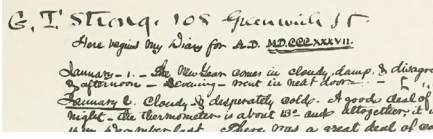 G. T. Strong. 108 Greenwich St.
Here begins My Diary for A.D. MDCCCXXXVII.
January - 1. - The New Year comes in cloudy, damp, & disagre
& afternoon - Evening - went in next door -
January 2. Cloudy & desperately cold. A good deal of
night - the thermometer is about 13° and altogether, it
December last. There was a great deal of co